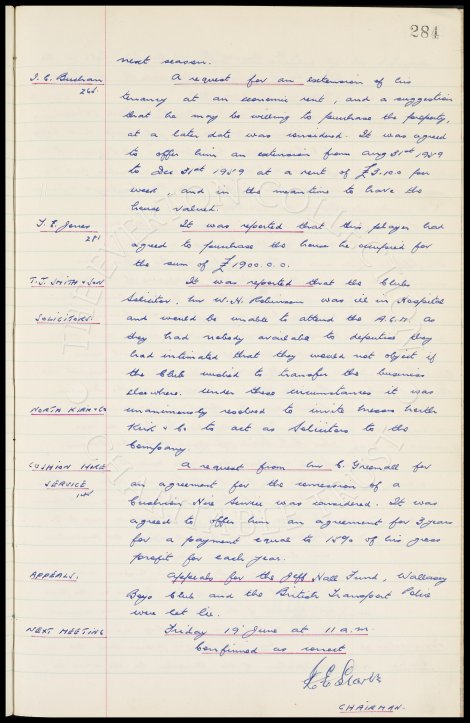 284
next season.
J. E. Bushan
262.
A request for an extension of his
tenancy at an economic rent, and a suggestion
that he may be willing to purchase the property,
at a later date was considered. It was agreed
to offer him an extension from Aug 31st 1959
to Dec 31st 1959 at a rent of £3.10.0 per
week, and in the meantime to have the
house valued.
T. E. Jones
281
It was reported that this player had
agreed to purchase the house he occupied for
the sum of £1900.0.0.
T. J. Smith & Son
Solicitors.
It was reported that the Clubs
Solicitor, Mr W. H. Robinson was ill in Hospital
and would be unable to attend the A.G.M. as
they had nobody available to deputise they
had intimated that they would not object if
the Club wished to transfer the business
elsewhere. Under these circumstances it was
North Kirk & Co
unanimously resolved to invite Messrs North
Kirk & Co to act as Solicitors to the
Company.
Cushion Hire
Service
A request from Mr C. Greenall for
an agreement for the concession of a
Cushion Hire Service was considered. It was
agreed to offer him an agreement for 3 years
for a payment equal to 15% of his gross
profit for each year.
Appeals.
Appeals for the Jeff Hall Fund, Wallasey
Boys Club and the British Transport Police
were let lie.
Next Meeting
Friday 19 June at 11 a.m.
Confirmed as correct
Chairman.